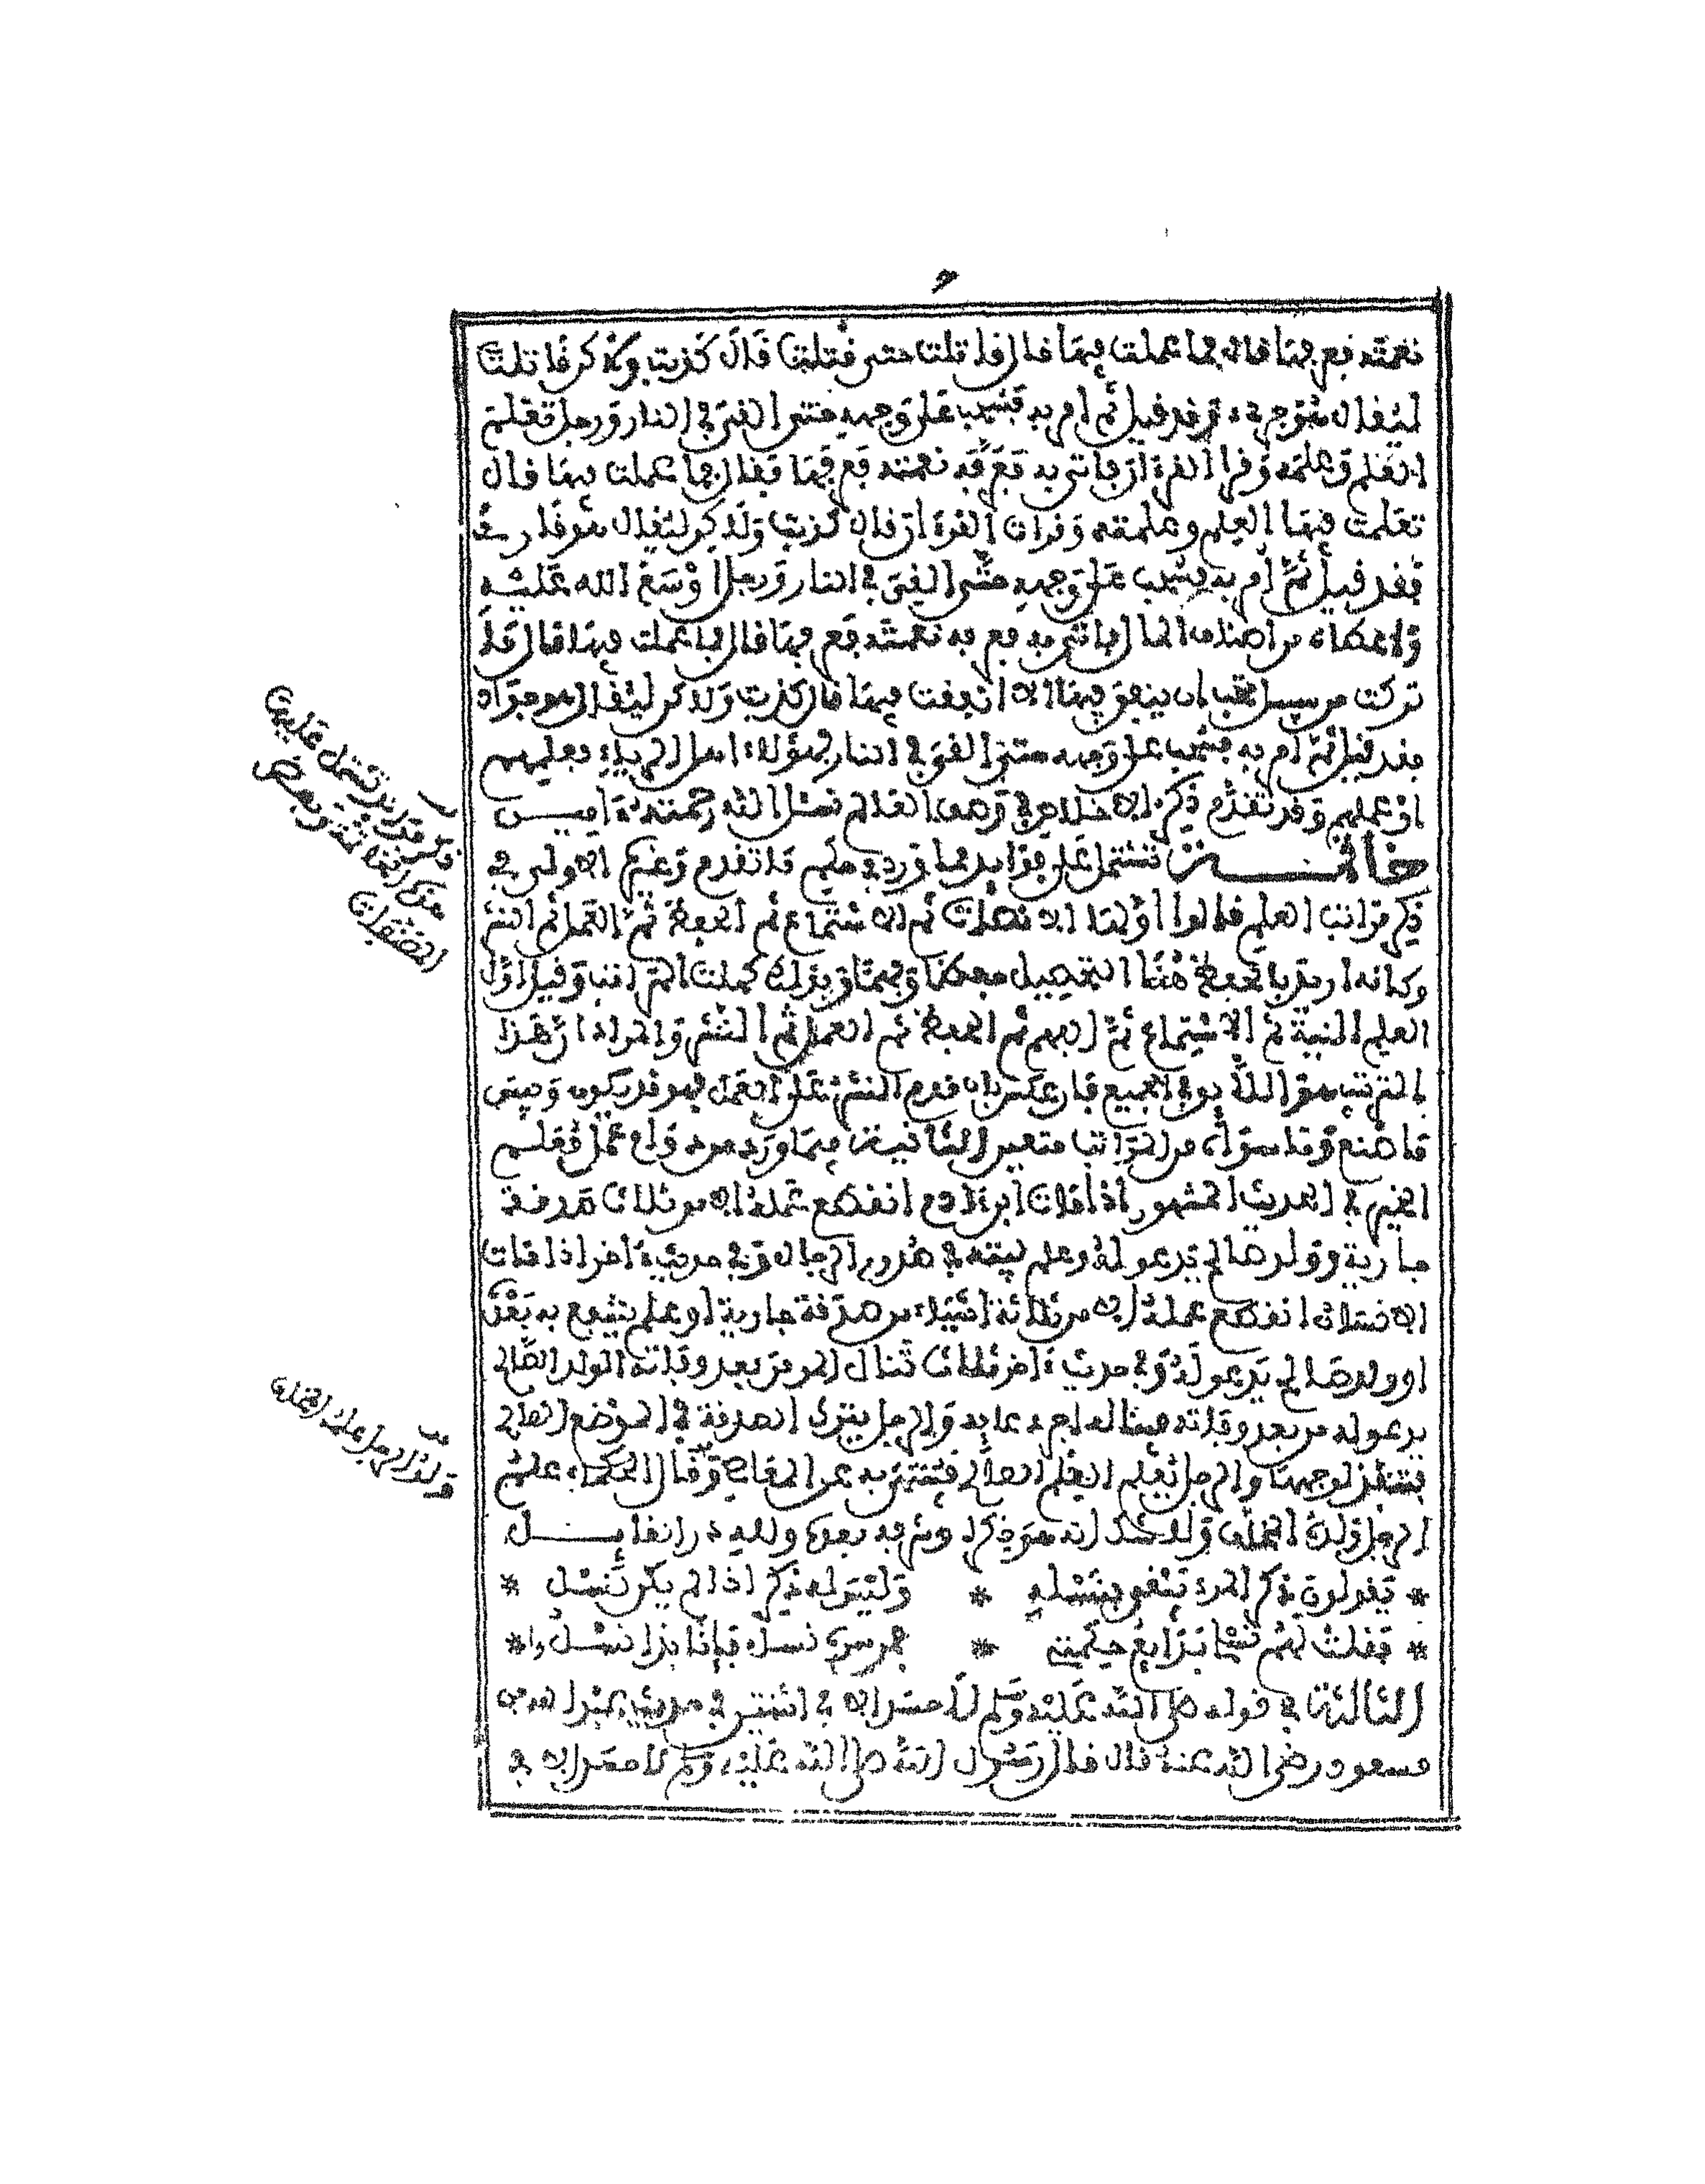 نعمته فعرفها قال فما عملت فيها قال قاتلت حتى قتلت قال كذبت ولكن قاتلت
ليقال هو جريء وقد قيل ثم أمر به فسحب على وجهه حتى ألقي في النار ورجل تعلم
العلم وعلمه وقرأ القرءان فأتي به فعرفه نعمته فعرفها فقال فما عملت فيها قال
تعلمت فيها العلم وعلمته وقرأت القرءان قال كذبت ولكن ليقال هو قارئ
فقد قيل ثم أمر به فسحب على وجهه حتى ألقي في النار ورجل أوسع الله عليه
وأعطاه من أصناف المال فأتي به فعرفه نعمته فعرفها قال فما عملت فيها قال ما
تركت من سبيل تحب أن ينفق فيها إلا أنفقت فيها قال كذبت ولكن ليقال هو جواد
فقد قيل ثم أمر به فسحب على وجهه حتى ألقي في النار فهؤلاء أهل الرياء بعلمهم
أو عملهم وقد تقدم ذكر الإخلاص في العلم نسأل الله رحمته ءاميـــن
خاتمـــة تشتمل على فوائد مما ورد في علم ما تقدم وغيره الأولى في
ذكر مراتب العلم قالوا أولها الإنصات ثم الاستماع ثم الحفظ ثم العمل ثم النشر
وكأنه أريد بالحفظ هنا التحصيل حفظا وفهما وبذلك كملت المراتب وقيل أول
العلم النية ثم الاستماع ثم الفهم ثم الحفظ ثم العمل ثم النشر والمراد أن هذا
الترتيب هو اللائق بالجميع فإن عكس بأن قدم النشر على العمل فهو قد يكون
ما صنع وما سواه من المراتب متعين الثانية فيما ورد من دوام عمل معلم
الخير في الحديث المشهور إذا مات ابن ءادم انقطع عمله إلا من ثلاث صدقة
جارية وولد صالح يدعو له وعلم يبثه في صدور الرجال وفي حديث ءاخر إذا مات
الإنسان انقطع عمله إلا من ثلاثة أشياء من صدقة جارية أو علم ينتفع به بعده
أو ولد صالح يدعو له وفي حديث ءاخر ثلاث تنال المؤمن بعد وفاته الولد الصالح
يدعو له من بعد وفاته فيناله أجر دعائه والرجل يترك الصدقة في الموضع الصالح
فتنفذ لوجهها والرجل يعلم العلم الصالح فينتهى به عن المعاصي وقال الحكماء علم
الرجل ولده المخلد ولا شك أنه هو ذكره وشرفه بعده ولله در القايـــل
* يقولون ذكر المرء يبقى بنسله * وليس له ذكر إذا لم يكن نسل *
* فقلت لهم نسلي بدائع حكمتي * فمن سره نسل فإنا بذا نسل *
الثالثة في قوله صلى الله عليه وسلم لا حسد إلا في اثنتين في حديث عبد الله بن
مسعود رضي الله عنه قال قال رسول الله صلى الله عليه وسلم لا حسد إلا في
ذكر فوائد تشتمل عليها
ولد الرجل علمه المخلد